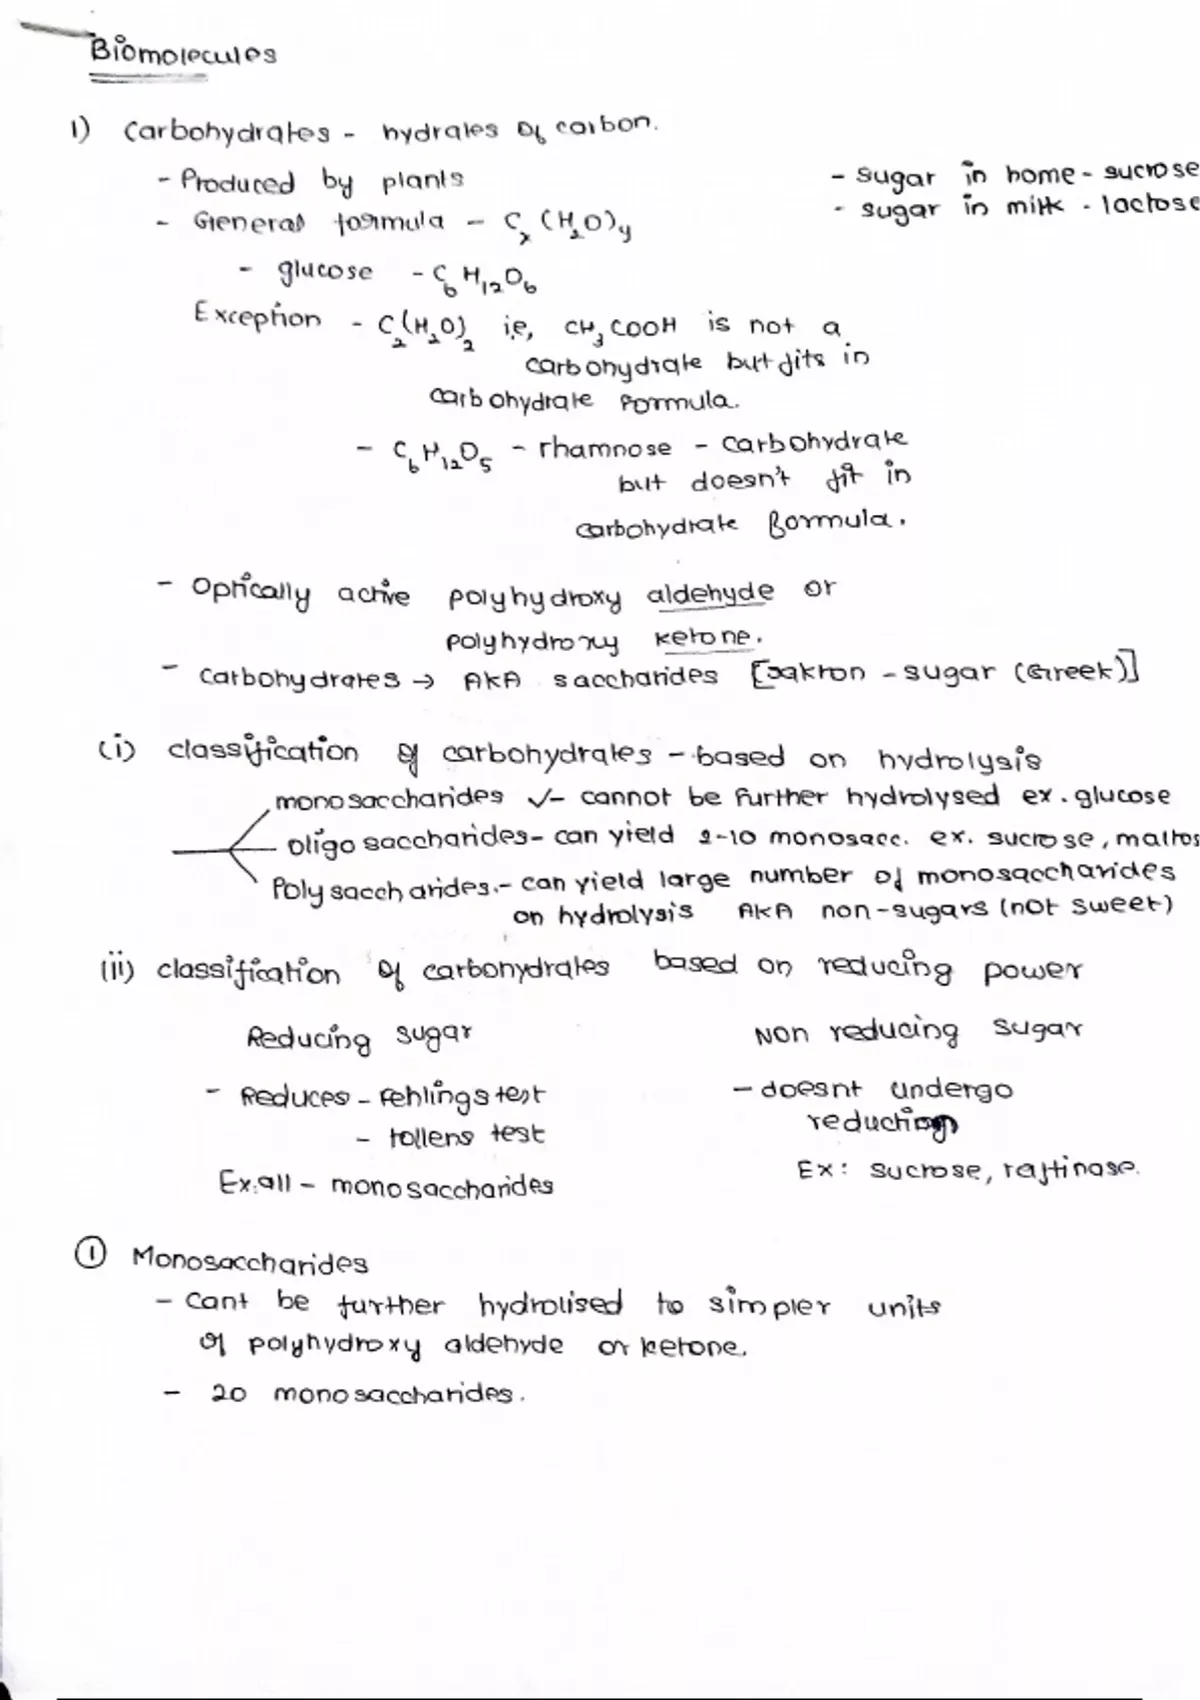 Biomolecules
1) Carbohydrates - hydrates of carbon.
- Produced by plants
- sugar in home - sucrose
- General formula - Cx(H2O)y
- sugar in milk - lactose
- glucose - C6H12O6
Exception - C2(H2O)2 i.e, CH3COOH is not a
carbohydrate but fits in
carbohydrate formula.
- C6H12O5 - rhamnose - carbohydrate
but doesn't fit in
carbohydrate formula.
- Optically active polyhydroxy aldehyde or
polyhydroxy ketone.
- Carbohydrates → AKA saccharides [sakron - sugar (Greek)]
(i) classification of carbohydrates - based on hydrolysis
monosaccharides ✓- cannot be further hydrolysed ex. glucose
oligosaccharides - can yield 2-10 monosacc. ex. sucrose, maltos
Polysaccharides. - can yield large number of monosaccharides
on hydrolysis AKA non-sugars (not sweet)
(ii) classification of carbohydrates based on reducing power
Reducing sugar
Non reducing sugar
- Reduces - fehlings test
- doesnt undergo
- tollens test
reduction
Ex: all - monosaccharides
Ex: sucrose, raffinase.
① Monosaccharides
- Cant be further hydrolised to simpler units
of polyhydroxy aldehyde or ketone.
- 20 monosaccharides.